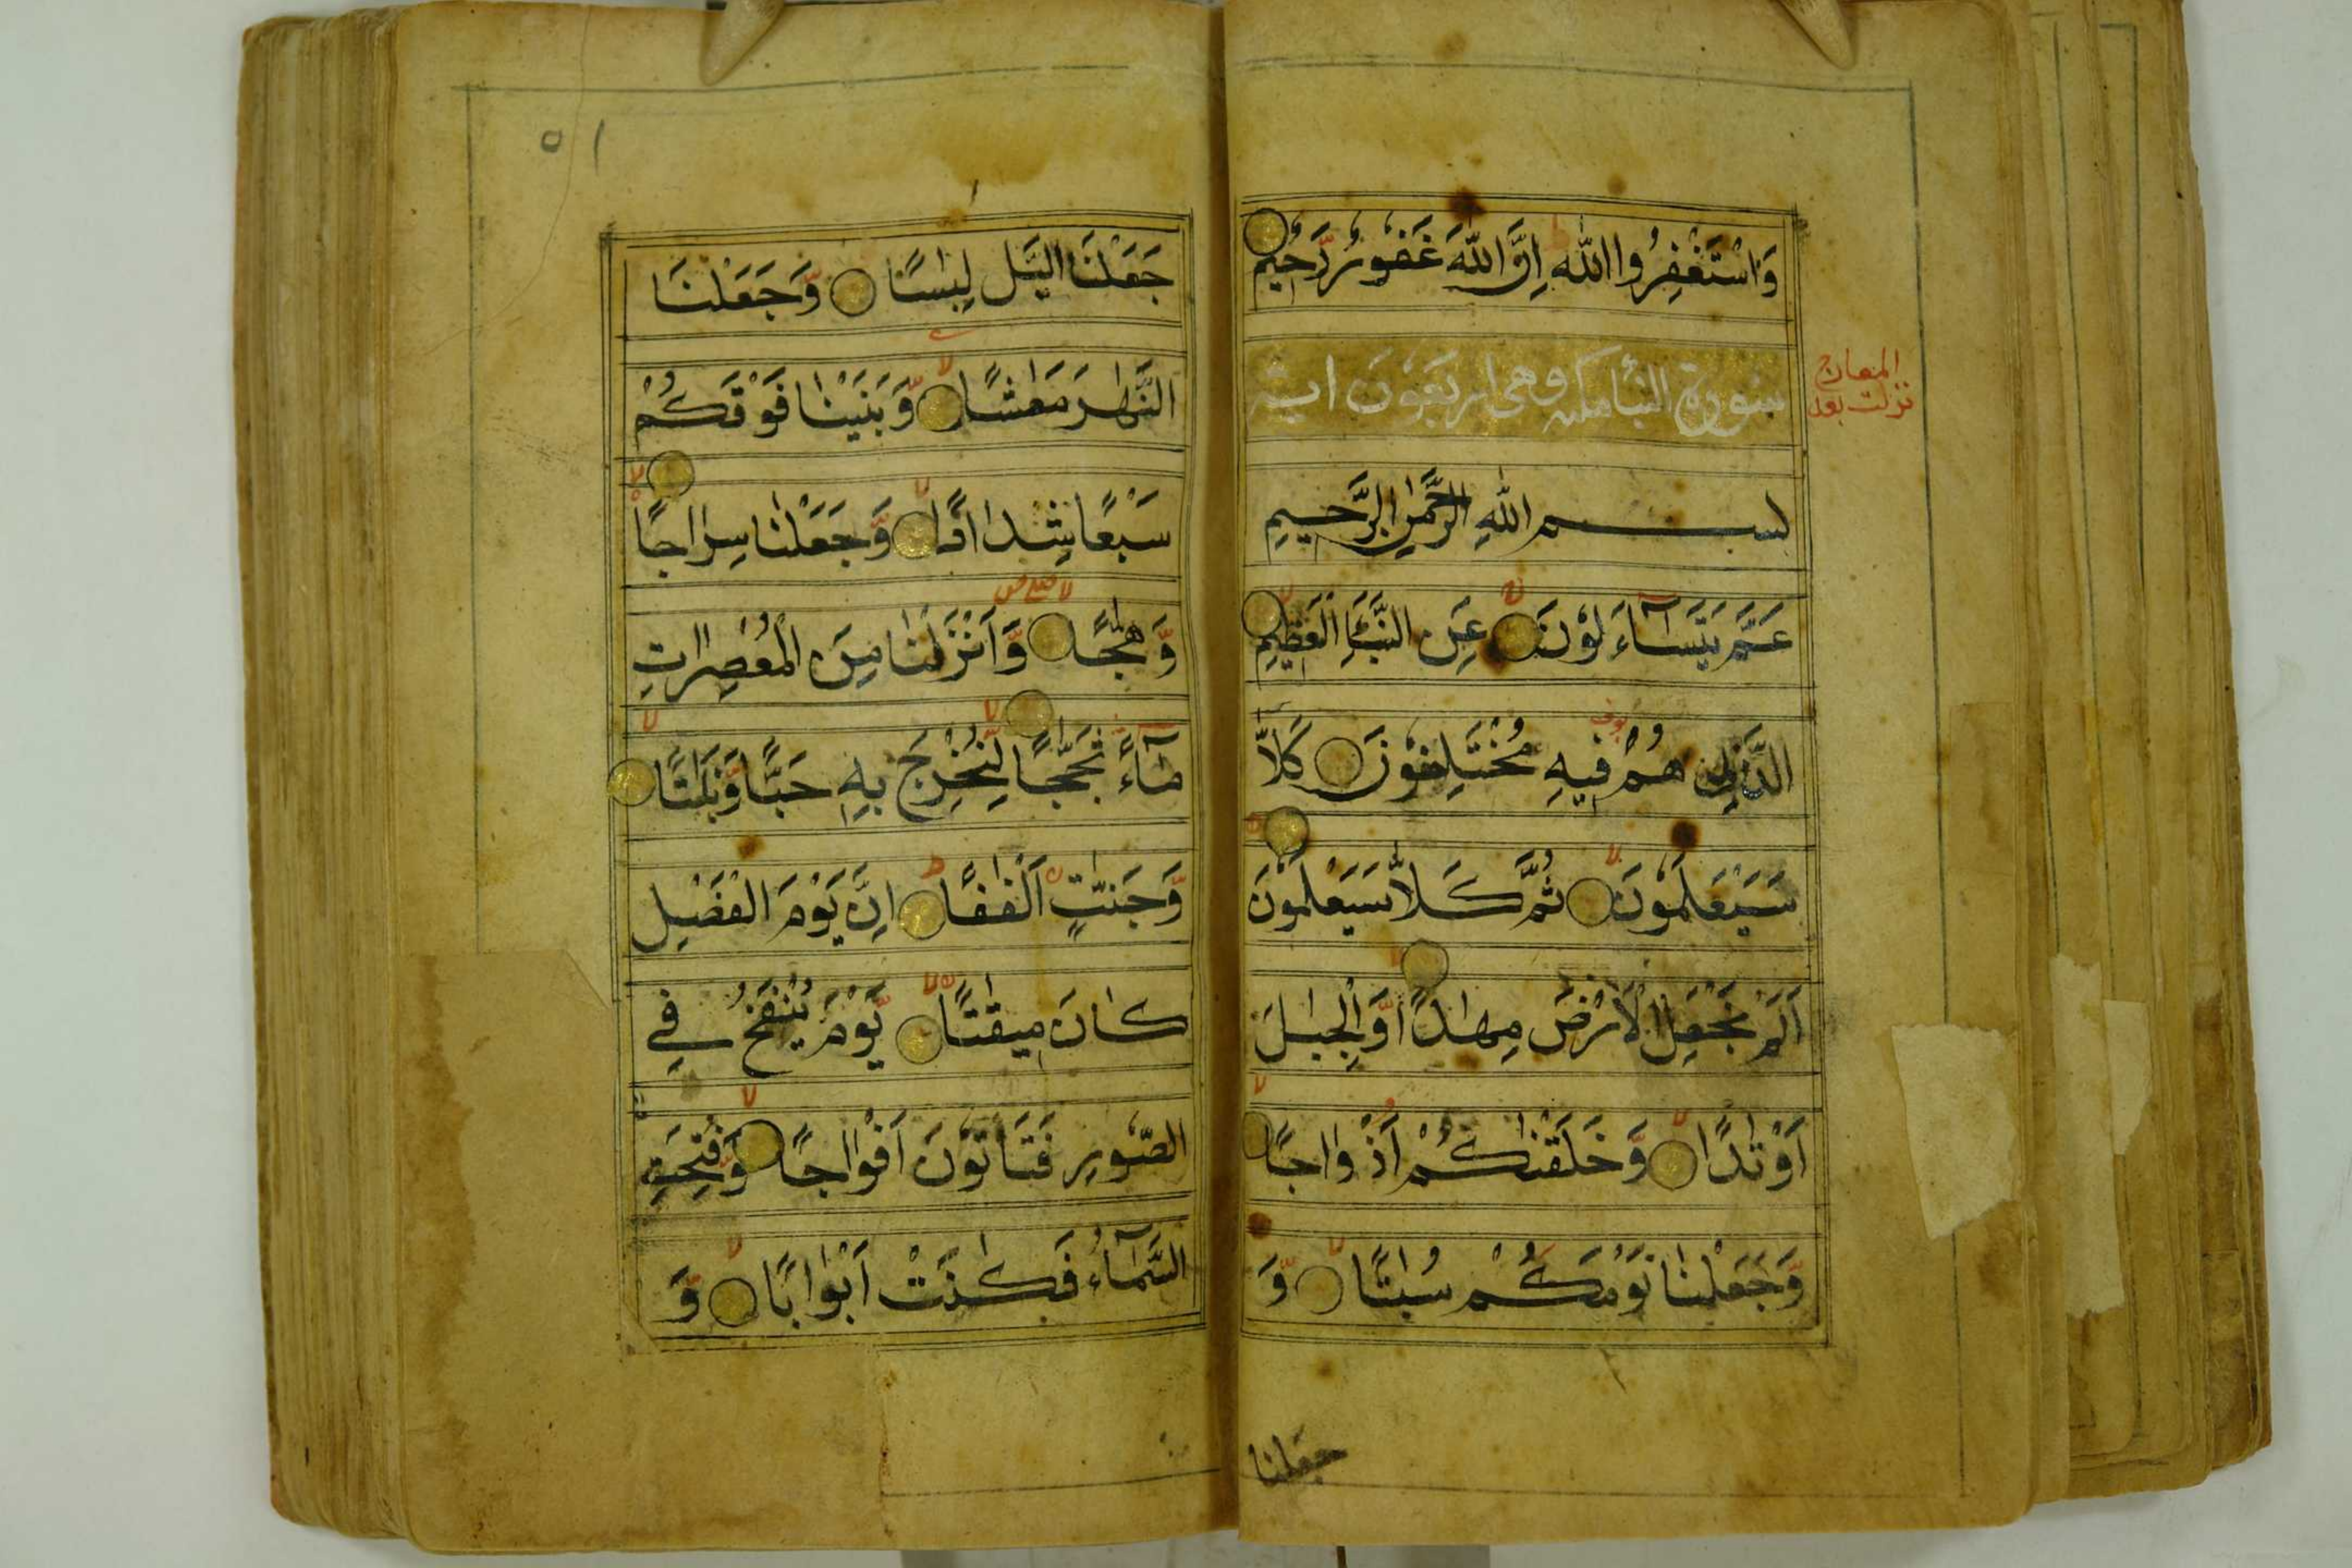 وَاسْتَغْفِرُوا اللّٰهَ ط اِنَّ اللّٰهَ غَفُوْرٌ رَّحِيْمٌ
سورة النبأ مكية وهي اربعون اية
المعارج
نزلت بعد
بسم اللهِ الرَّحْمٰنِ الرَّحِيمِ
عَمَّ يَتَسَآءَلُوْنَ عَنِ النَّبَاِ الْعَظِيْمِ
الَّذِيْ هُمْ فِيهِ مُخْتَلِفُوْنَ كَلَّا
سَيَعْلَمُوْنَ ثُمَّ كَلَّا سَيَعْلَمُوْنَ
اَلَمْ نَجْعَلِ الْاَرْضَ مِهٰدًا وَّالْجِبَالَ
اَوْتَادًا وَّخَلَقْنٰكُمْ اَزْوَاجًا
وَّجَعَلْنَا نَوْمَكُمْ سُبَاتًا وَّ
جعلنا
٥١
جَعَلْنَا الَّيْلَ لِبَاسًا وَّجَعَلْنَا
النَّهَارَ مَعَاشًا وَّبَنَيْنَا فَوْقَكُمْ
سَبْعًا شِدَادًا وَّجَعَلْنَا سِرَاجًا
وَّهَّاجًا وَّاَنْزَلْنَا مِنَ الْمُعْصِرَاتِ
مَآءً ثَجَّاجًا لِّنُخْرِجَ بِهِ حَبًّا وَّنَبَاتًا
وَّجَنّٰتٍ اَلْفَافًا اِنَّ يَوْمَ الْفَصْلِ
كَانَ مِيقَاتًا يَّوْمَ يُنْفَخُ فِي
الصُّوْرِ فَتَاْتُوْنَ اَفْوَاجًا وَّفُتِحَتِ
السَّمَآءُ فَكَانَتْ اَبْوَابًا وَّ